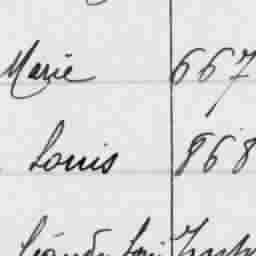 Marie 667
Louis 868